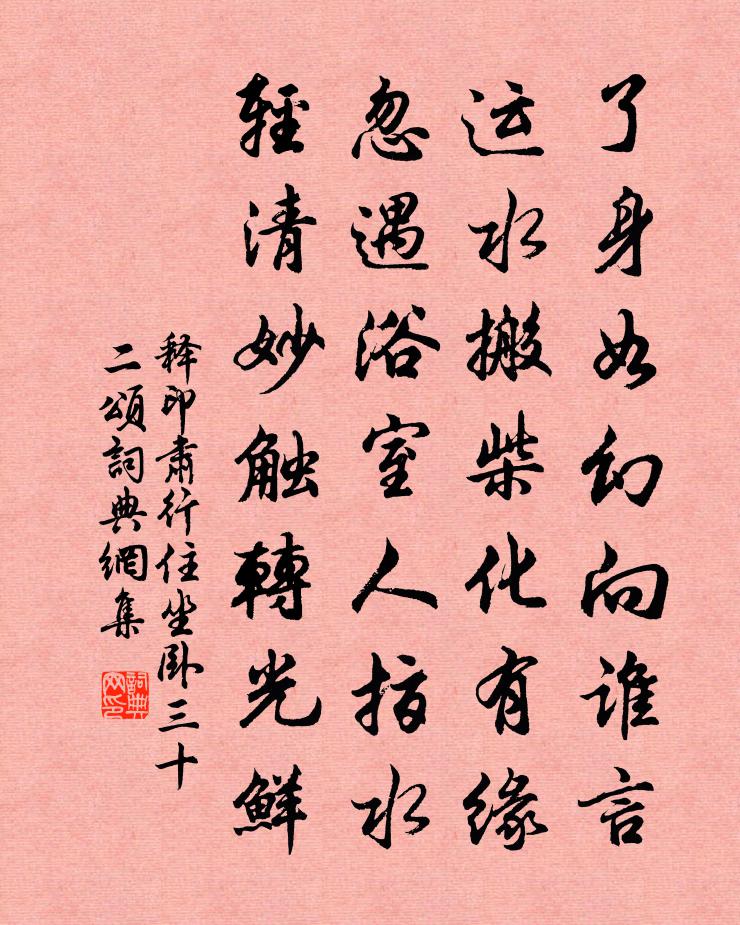 了身如幻向谁言
运水搬柴化有缘
忽遇浴室人指水
轻清妙触轉光鲜
释印肃行住坐卧三十
二頌詞典網集
詞典
网印